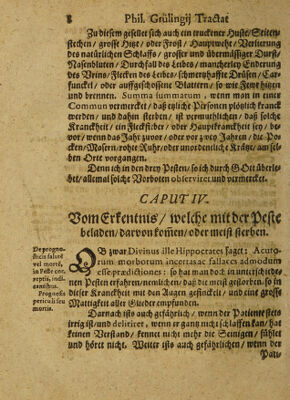 8 Phil. Grülingij Tractat
Zu diesem gesellet sich auch ein truckener Huste/ Seiten-
stechen/ grosse Hitz/ oder Frost/ Hauptwehe/ Verlierung
des natürlichen Schlaffs/ grosser und übermäßiger Durst/
Nasenbluten/ Durchfall des Leibes/ mancherley Enderung
des Vrins/ Flecken des Leibes/ schmertzhaffte Drüsen/ Car-
funckel/ oder auffgeschossene Blattern/ so wie Fewr hitzen
und brennen. Summa summarum, wenn man in einer
Commun vermercket/ daß etzliche Personen plötzlich kranck
werden/ und dahin sterben/ ist vermuthlichen/ daß solche
Kranckheit/ ein Fleckfieber/ oder Hauptkranckheit sey/ be-
vor/ wenn das Jahr zuvor/ oder vor zwey Jahren/ die Po-
cken/ Masern/ rothe Ruhr/ oder unordentliche Krätz/ am sel-
ben Orte vorgangen.
Denn ich in den drey Pesten/ so ich durch Gott überle-
bet/ allemal solche Vorboten observiret und vermercket.
CAPUT IV.
Vom Erkentnis/ welche mit der Peste
beladen/ darvon kommen/ oder meist sterben.
De progno-
sticis salutis
vel mortis,
in Peste con-
ceptis, indi-
cantibus.
Prognosis
periculi seu
mortis.
OB zwar Divinus ille Hippocrates saget: Acuto-
rum morborum incertas ac fallaces admodum
esse prædictiones: so hat man doch in unterschiede-
nen Pesten erfahren/ nemlichen/ daß die meist gestorben, so in
dieser Kranckheit mit den Augen gefinckelt/ und eine grosse
Mattigkeit aller Glieder empfunden.
Darnach ists auch gefährlich/ wenn der Patiente stets
irrig ist/ und deliriret, wenn er gang nicht schlaffen kan/ hat
keinen Verstand/ kennet nicht mehr die Seinen/ schläfet
und höret nicht. Weiter ists auch gefährlichen/ wenn der
Pati-